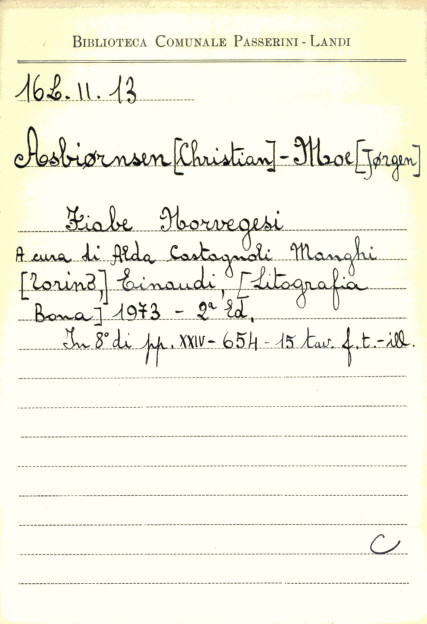 BIBLIOTECA COMUNALE PASSERINI - LANDI
16L. II. 13
Asbiørnsen [Christian] - Moe [Jørgen]
Fiabe Norvegesi
A cura di Alda Castagnoli Manghi
[Torino,] Einaudi, [Litografia
Bona] 1973 - 2ª Ed.
In 8° di pp. XXIV - 654 - 15 tav. f. t. - ill.
C